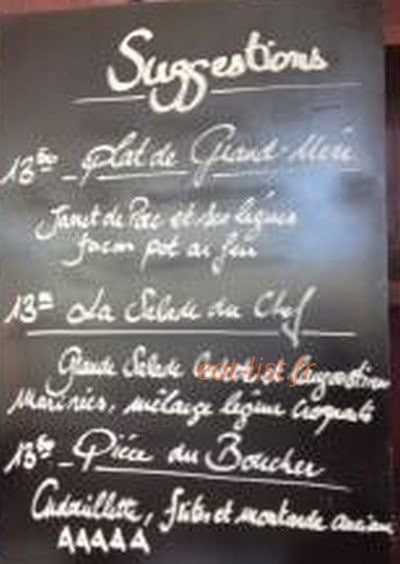 Suggestions
13⁵⁰ - Plat de Grand-Mère
Jarret de Porc et ses légumes
façon pot au feu
13 La Salade du Chef
Grande Salade langoustines
Marinées, mélange légume croquants
13⁵⁰ - Pièce du Boucher
Andouillette, frites et moutarde ancienne
AAAAA
eat-list.fr